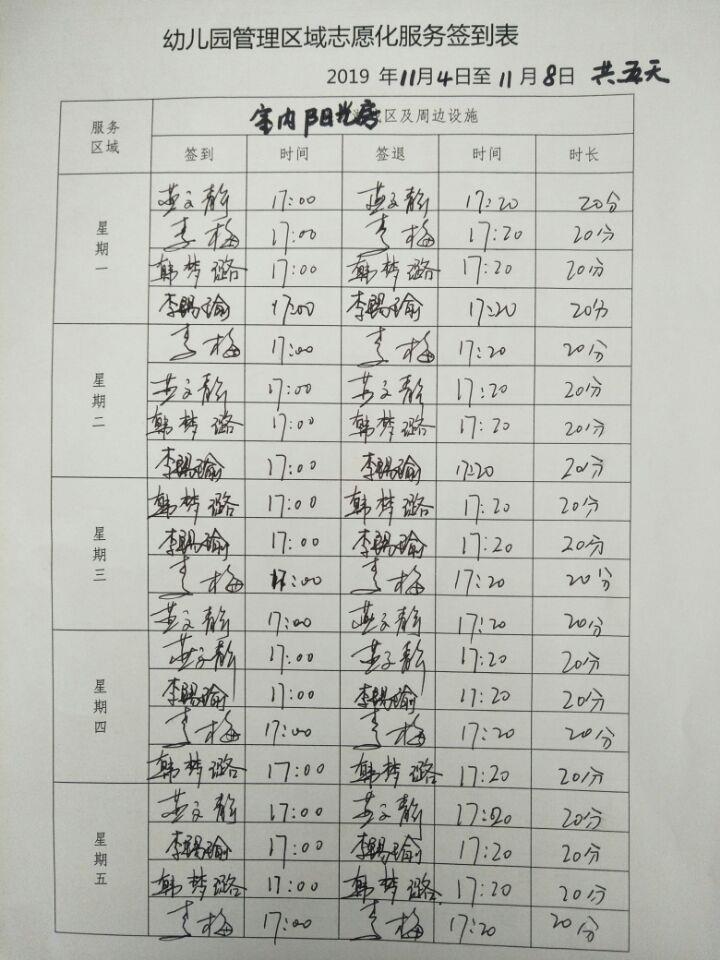 幼儿园管理区域志愿化服务签到表
2019 年11月4日至11月8日 共五天
服务区域 室内阳光房 区及周边设施
签到 时间 签退 时间 时长
星期一
燕文静 17:00 燕文静 17:20 20分
李梅 17:00 李梅 17:20 20分
韩梦璐 17:00 韩梦璐 17:20 20分
李賜瑜 17:00 李賜瑜 17:20 20分
星期二
李梅 17:00 李梅 17:20 20分
燕文静 17:00 燕文静 17:20 20分
韩梦璐 17:00 韩梦璐 17:20 20分
李賜瑜 17:00 李賜瑜 17:20 20分
星期三
韩梦璐 17:00 韩梦璐 17:20 20分
李賜瑜 17:00 李賜瑜 17:20 20分
李梅 17:00 李梅 17:20 20分
燕文静 17:00 燕文静 17:20 20分
星期四
燕文静 17:00 燕文静 17:20 20分
李賜瑜 17:00 李賜瑜 17:20 20分
李梅 17:00 李梅 17:20 20分
韩梦璐 17:00 韩梦璐 17:20 20分
星期五
燕文静 17:00 燕文静 17:20 20分
李賜瑜 17:00 李賜瑜 17:20 20分
韩梦璐 17:00 韩梦璐 17:20 20分
李梅 17:00 李梅 17:20 20分